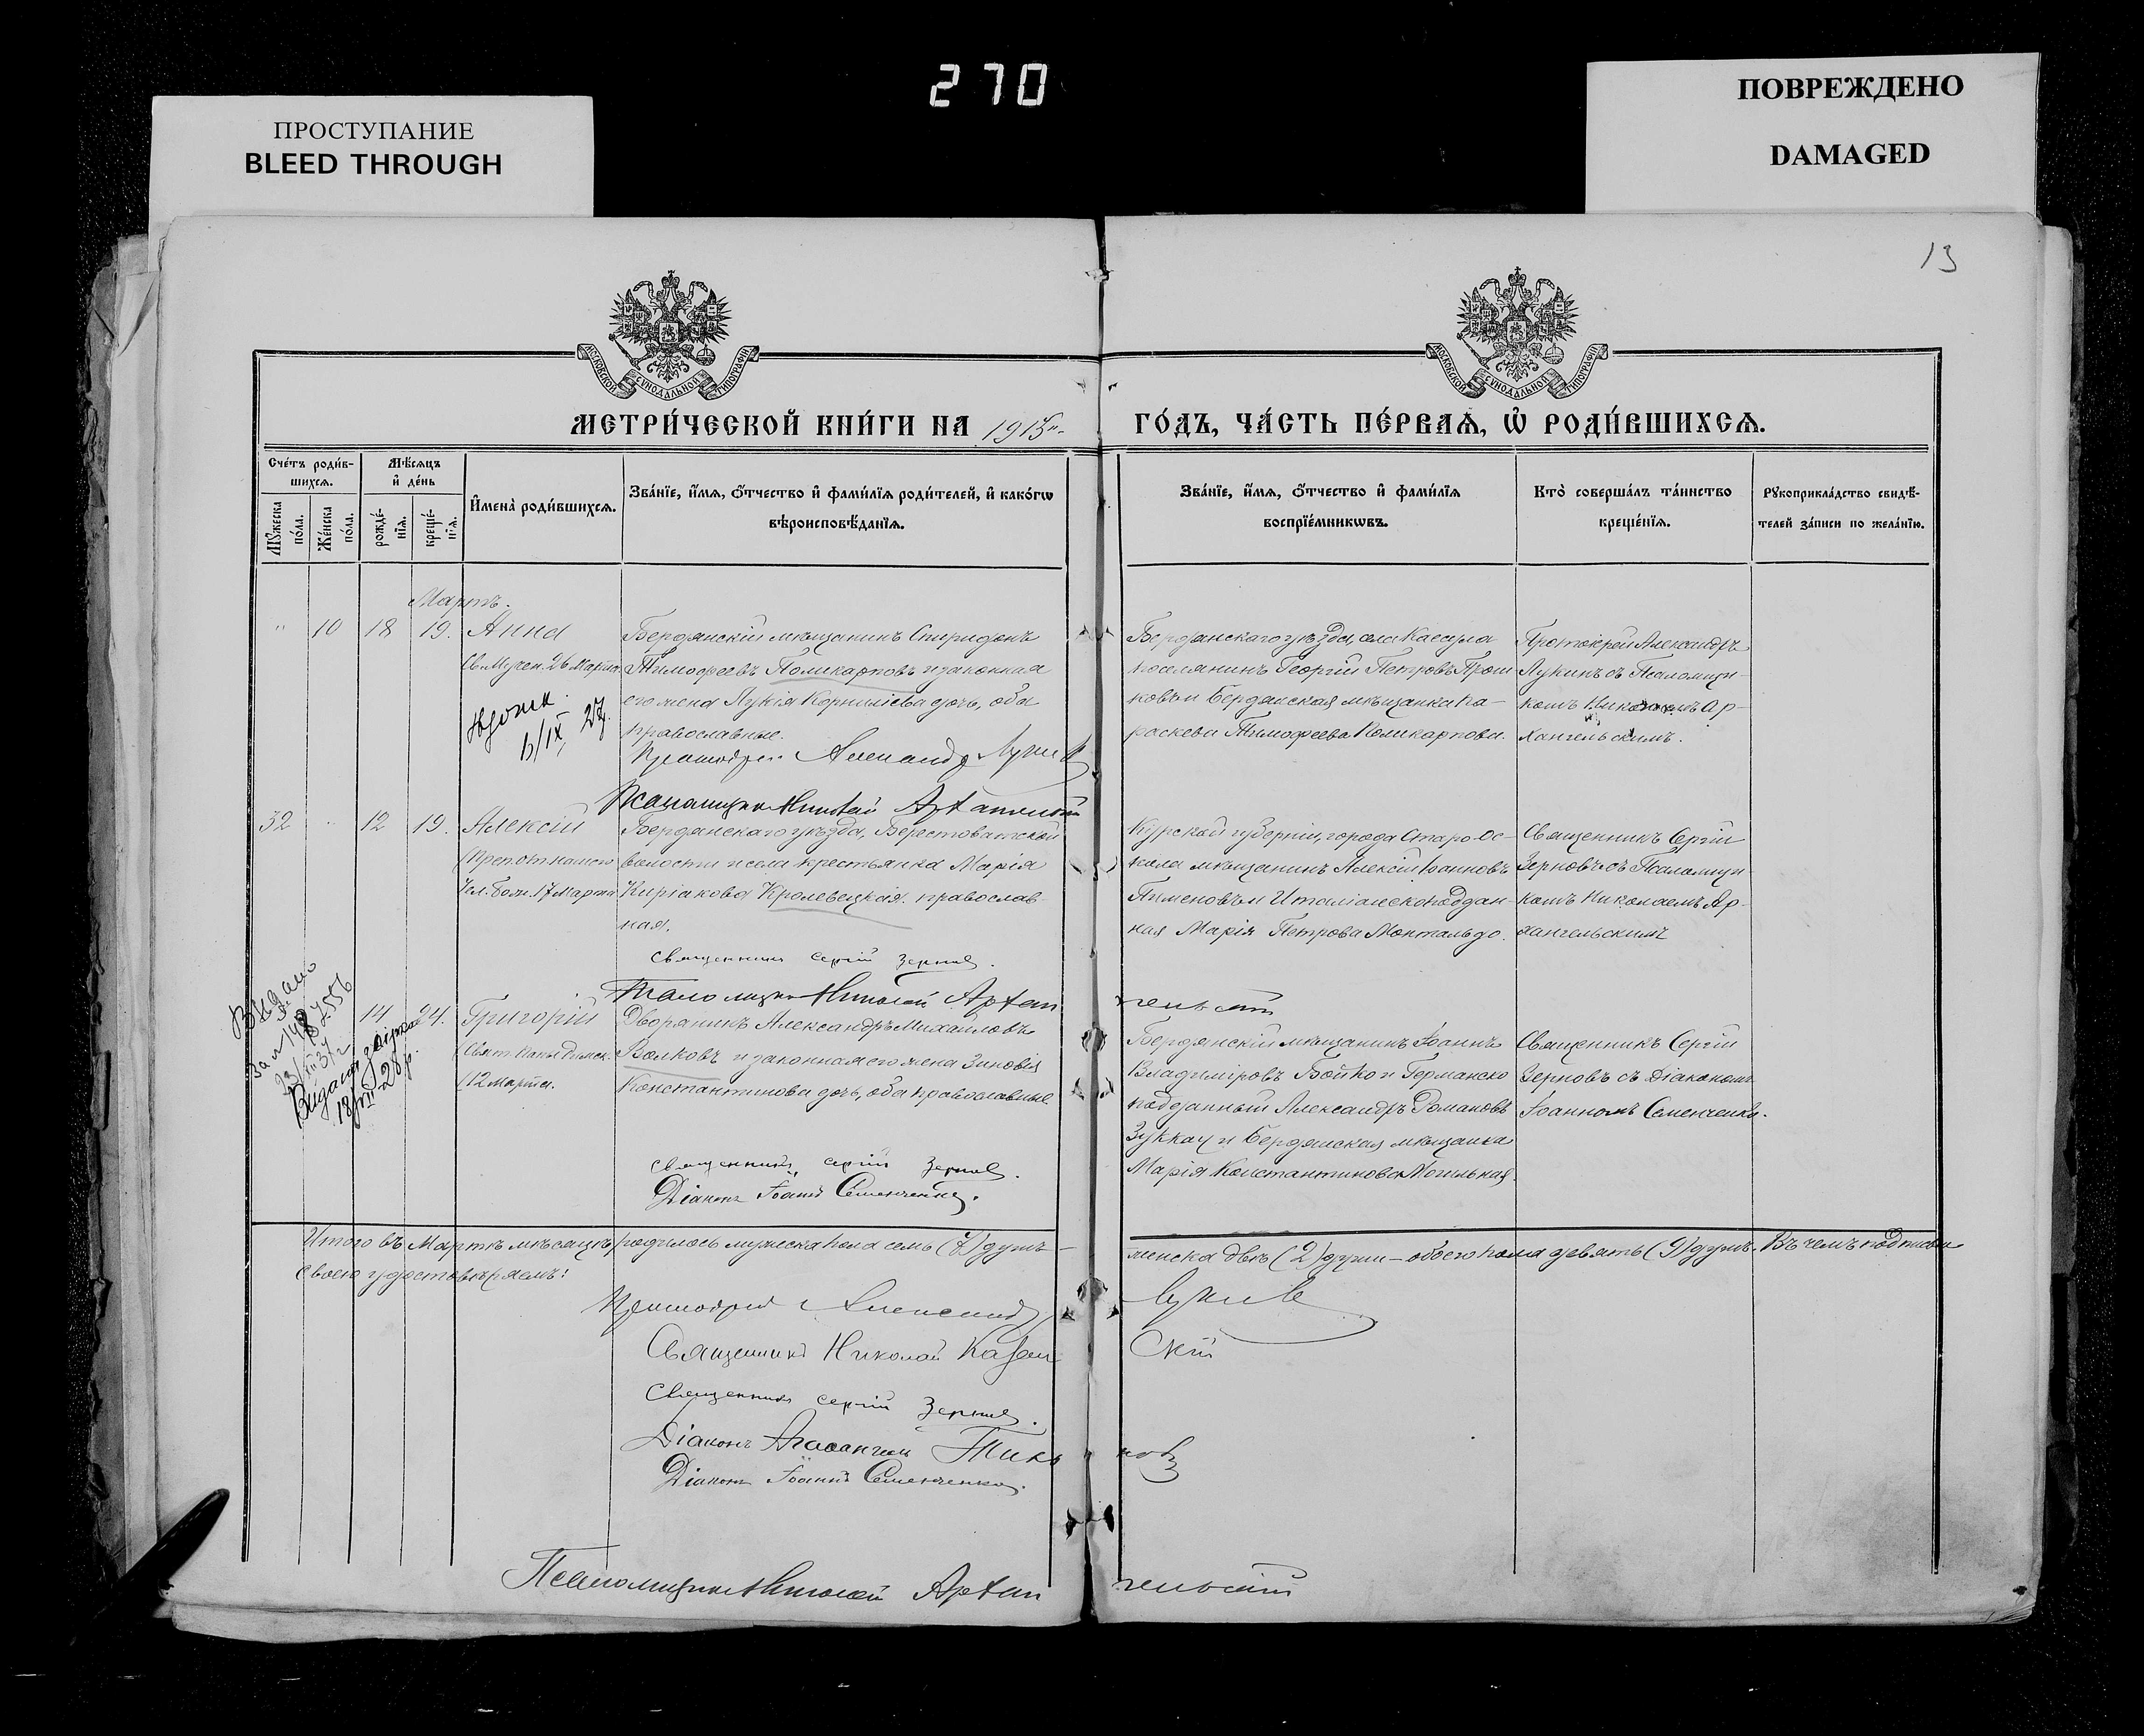 270
ПРОСТУПАНИЕ
BLEED THROUGH
ПОВРЕЖДЕНО
DAMAGED
13
МОСКОВСКОЙ СУНОДАЛЬНОЙ ТИПОГРАФІИ
МОСКОВСКОЙ СУНОДАЛЬНОЙ ТИПОГРАФІИ
МЕТРИ́ЧЕСКОЙ КНИ́ГИ НА 1915й
ГО́ДЪ, ЧА́СТЬ ПЕ́РВАѦ, Ѡ҆ РОДИ́ВШИХСѦ.
Сче́тъ роди́в-
шихсѧ.
Мѣ́сѧцъ
и҆ де́нь
Мꙋ́жеска
по́ла.
Же́нска
по́ла.
рожде́-
нїѧ.
креще́-
нїѧ.
И҆мена̀ роди́вшихсѧ.
Зва́нїе, и҆́мѧ, ѻ҆́тчество и҆ фами́лїѧ роди́телей, и҆ како́гѡ
вѣроисповѣ́данїѧ.
Зва́нїе, и҆́мѧ, ѻ҆́тчество и҆ фами́лїѧ
воспрїе́мникѡвъ.
Кто̀ соверша́лъ та́инство
креще́нїѧ.
Рꙋкоприкла́дство свидѣ́-
телей за́писи по жела́нїю.
Мартъ.
" 10 18 19. Анна
Св. Мучен. 26 Марта
Бердянскій мѣщанинъ Спиридонъ
Тимофеевъ Поликарповъ и законная
его жена Лукія Корниліева дочь, оба
православные.
Протоіерей Александръ Лукинъ
Псаломщикъ Николай Архангельскій
Бердянскаго уѣзда, села
поселянинъ Георгій Петровъ Прош-
ковъ и Бердянская мѣщанка Па-
раскева Тимофеева Поликарпова.
Протоіерей Александръ
Лукинъ съ Псаломщи-
комъ Николаемъ Ар-
хангельскимъ.
32 " 12 19. Алексій
(Преп. от. нашего
Чел. Бож. 17 Марта
Бердянскаго уѣзда, Берестоватской
волости и села крестьянка Марія
Киріакова Кролевецкая. православ-
ная.
Священникъ Сергій Зерновъ.
Псаломщикъ Николай Архан
гельскій
Курской губерніи, города Старо-Ос-
кола мѣщанинъ Алексій Іоанновъ
Пименовъ и Италіанскоподдан-
ная Марія Петрова Монтальдо.
Священникъ Сергій
Зерновъ съ Псаломщи-
комъ Николаемъ Ар-
хангельскимъ
14 24. Григорій
(Свят. Папы Римск.
(12 Марта.
Дворянинъ Александръ Михайловъ
Волковъ и законная его жена Зиновія
Константинова дочь, оба православные
Священникъ Сергій Зерновъ.
Діаконъ Іоаннъ Семенченко.
Бердянскій мѣщанинъ Іоаннъ
Владиміровъ Бойко и Германско
подданный Александръ Романовъ
Зуккау и Бердянская мѣщанка
Марія Константинова Могильная.
Священникъ Сергій
Зерновъ съ Діакономъ
Іоанномъ Семенченко.
Итого въ Мартѣ мѣсяцѣ родилось мужеска пола семь (7) душъ —
женска двѣ (2) души — обоего пола девять (9) душъ. Въ чемъ подписью
своею удостовѣряемъ:
Протоіерей Александръ Лукинъ
Священникъ Николай Казан
скій
Священникъ Сергій Зерновъ.
Діаконъ Агафангелъ Тихо
новъ
Діаконъ Іоаннъ Семенченко.
Псаломщикъ Николай Архан
гельскій